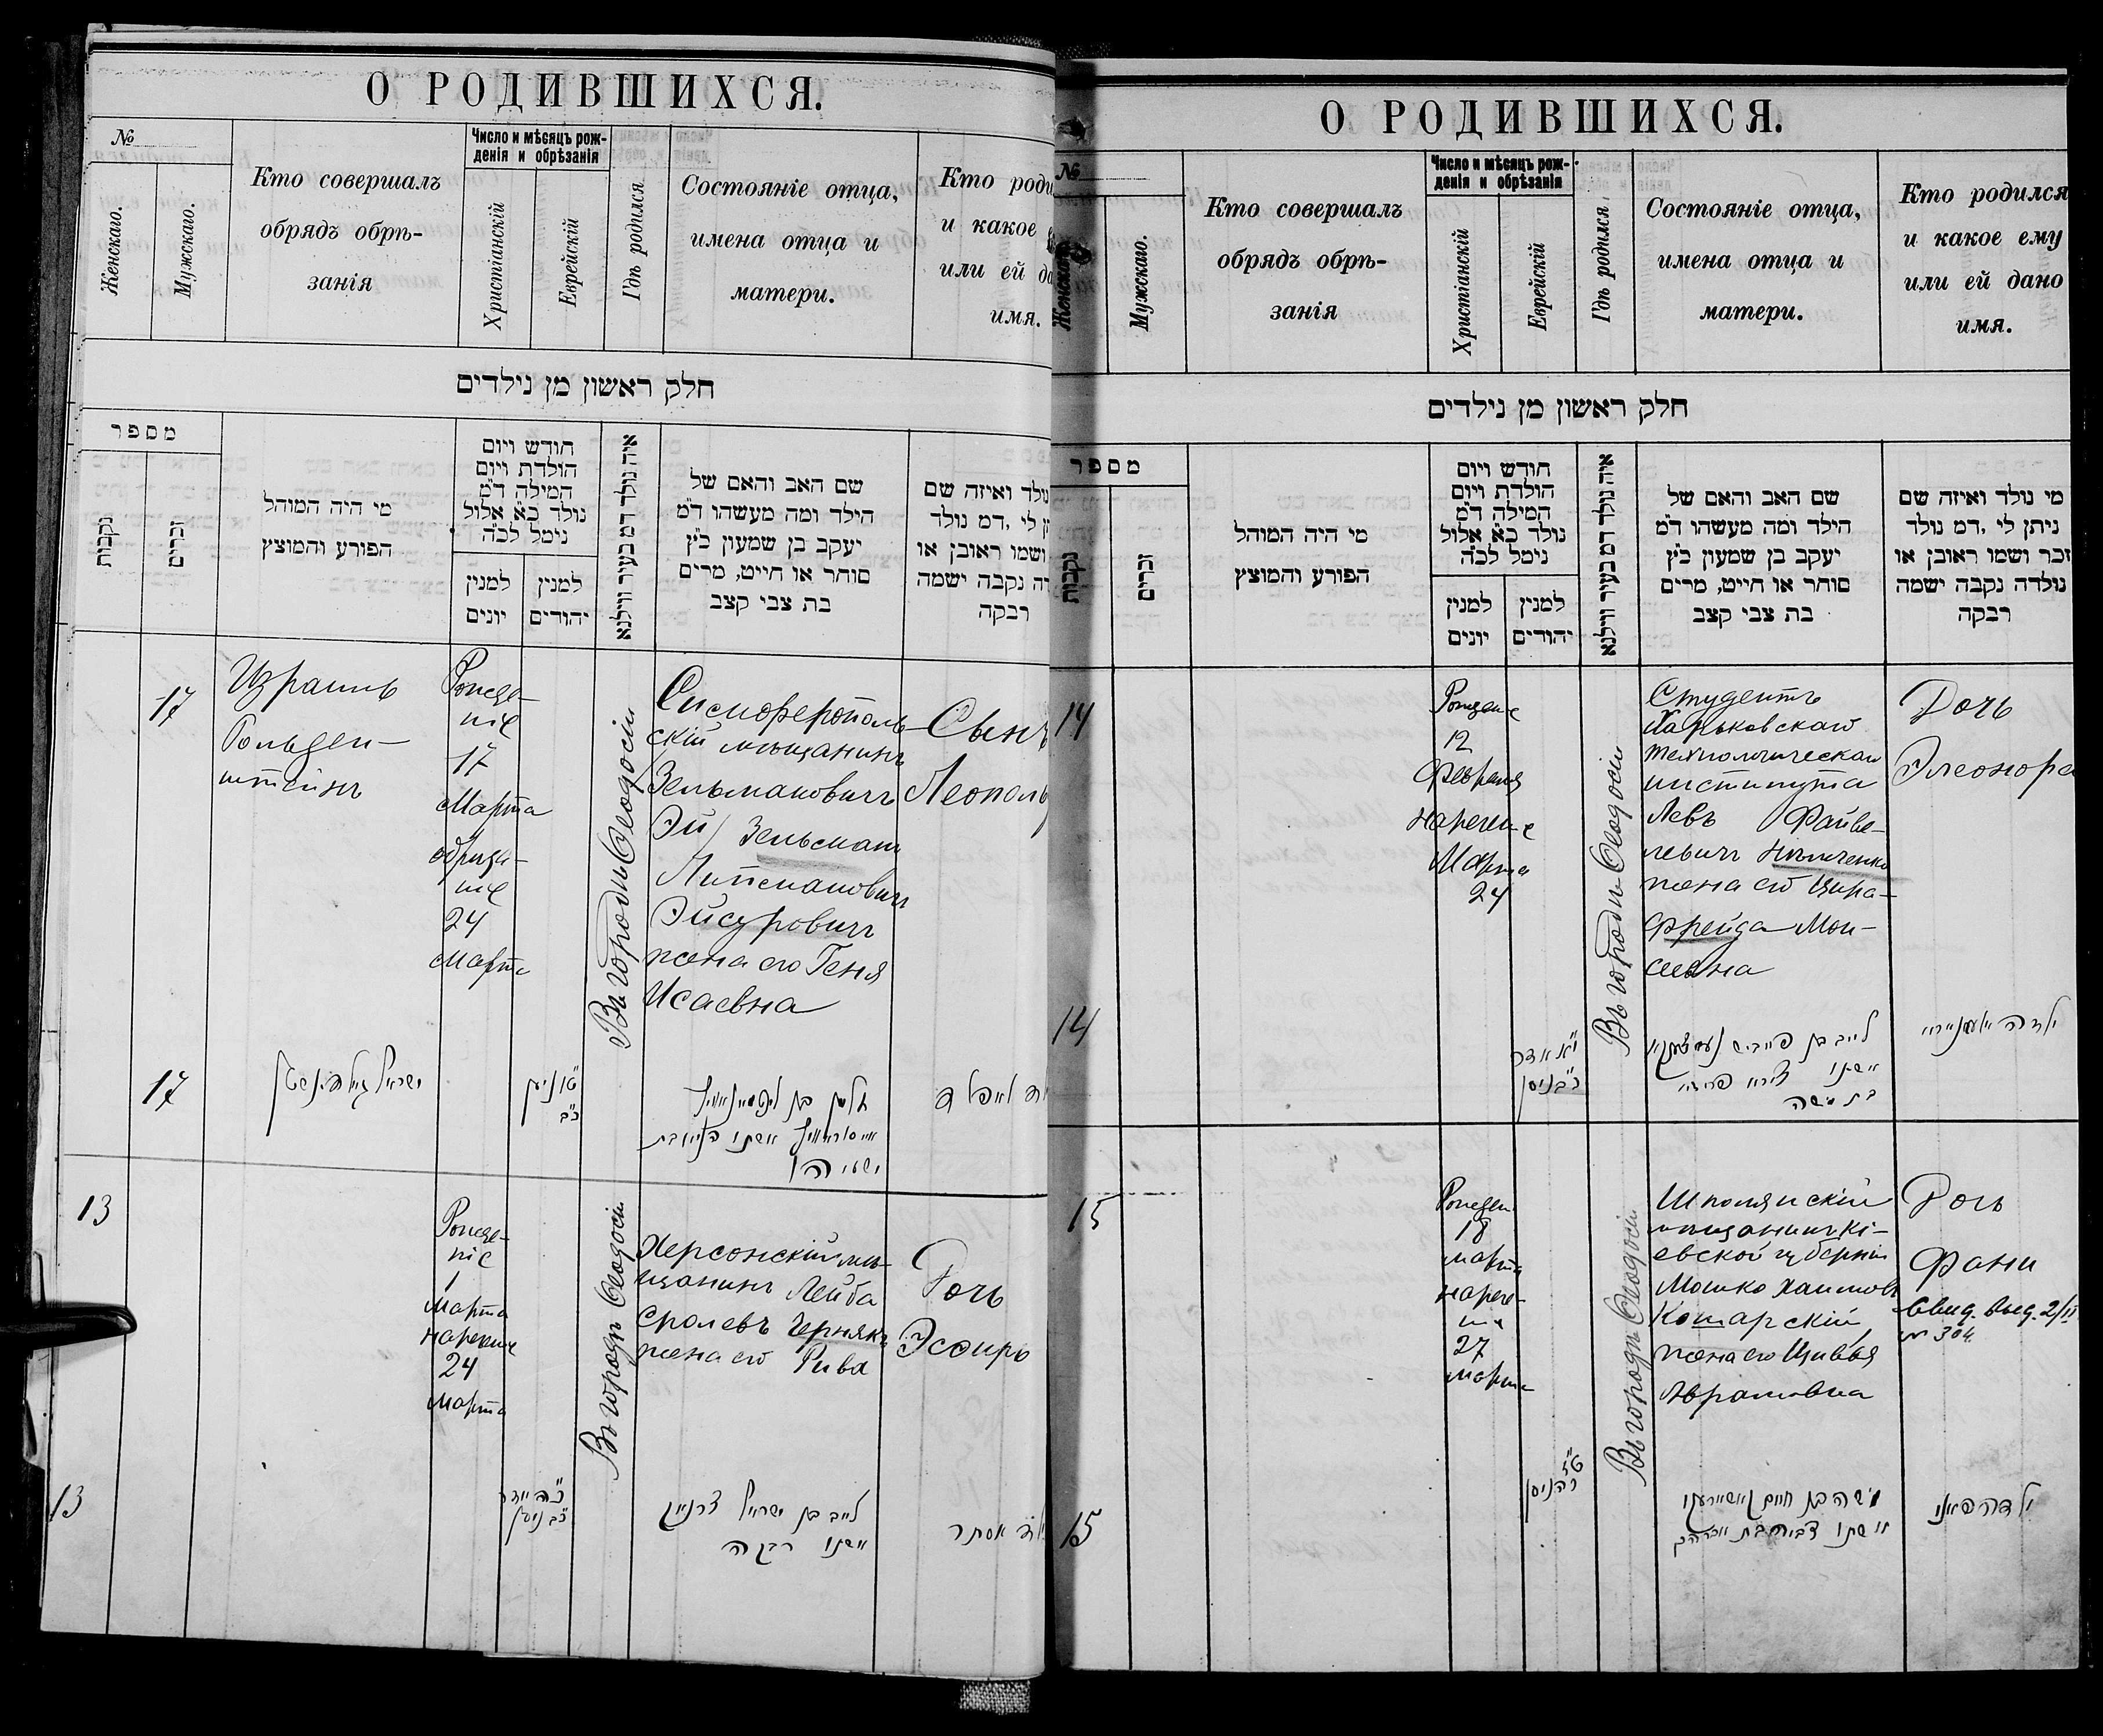 О РОДИВШИХСЯ.
№
Женскаго.
Мужскаго.
Кто совершалъ
обрядъ обрѣ-
занія
Число и мѣсяцъ рож-
денія и обрѣзанія
Христіанскій
Еврейскій
Гдѣ родился
Состояніе отца,
имена отца и
матери.
Кто роди
и какое
или ей да
имя.
חלק ראשון מן נילדים
מספר
נקבות
זכרים
מי היה המוהל
הפורע והמוצץ
חודש ויום
הולדת ויום
המילה ד״מ
נולד כ״א אלול
נימל לכ״ה
למנין
יונים
למנין
יהודים
איה נולד דמ בעיר ווילנא
שם האב והאם של
הילד ומה מעשהו ד״מ
יעקב בן שמעון כ״ץ
סוחר או חייט, מרים
בת צבי קצב
נולד ואיזה שם
ן לי ,דמ נולד
ושמו ראובן או
דה נקבה ישמה
רבקה
17
Израиль
Гольден-
штейнъ
Рожде-
ніе
17
Марта
обрѣза-
ніе
24
Марта
Въ городѣ Ѳеодосіи
Симферополь-
скій мѣщанинъ
Зельмановичъ
Эй/ Зельманъ
Липмановичъ
Эйсуровичъ
жена его Геня
Исаевна
Сынъ
Леополь
17
13
Рожде-
ніе
1
Марта
нареченіе
24
Марта
Въ городѣ Ѳеодосіи
Херсонскій мѣ-
щанинъ Лейба
Сролевъ Чернякъ
жена его Рива
Дочь
Эсѳирь
13
לייב בן ישראל צרניאק
אשתו רבקה
אסתר
О РОДИВШИХСЯ.
№
Женскаго
Мужскаго.
Кто совершалъ
обрядъ обрѣ-
занія
Число и мѣсяцъ рож-
денія и обрѣзанія
Христіанскій
Еврейскій
Гдѣ родился
Состояніе отца,
имена отца и
матери.
Кто родился
и какое ему
или ей дано
имя.
חלק ראשון מן נילדים
מספר
נקבות
זכרים
מי היה המוהל
הפורע והמוצץ
חודש ויום
הולדת ויום
המילה ד״מ
נולד כ״א אלול
נימל לכ״ה
למנין
יונים
למנין
יהודים
איה נולד דמ בעיר ווילנא
שם האב והאם של
הילד ומה מעשהו ד״מ
יעקב בן שמעון כ״ץ
סוחר או חייט, מרים
בת צבי קצב
מי נולד ואיזה שם
ניתן לי ,דמ נולד
זכר ושמו ראובן או
נולדה נקבה ישמה
רבקה
14
Рожденіе
12
Февраля
нареченіе
Марта
24
Въ городѣ Ѳеодосіи
Студентъ
Харьковскаго
технологическаго
института
Левъ Файве-
левичъ
жена его Цира-
Фрейда Мои-
сеевна
Дочь
Элеонора
14
בת משה
15
Рожден
18
марта
нарече-
ніе
27
марта
Въ городѣ Ѳеодосіи
Шполянскій
мѣщанинъ Кі-
евской губерніи
Мошко Хаимовъ
Комарскій
жена его Цивья
Абрамовна
Дочь
Фани
Свид. выд. 2/II
№ 304.
15
ילדה פאני